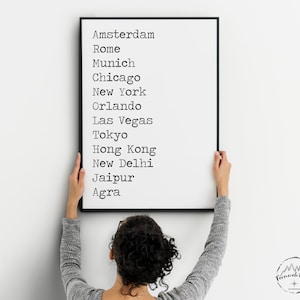 Amsterdam
Rome
Munich
Chicago
New York
Orlando
Las Vegas
Tokyo
Hong Kong
New Delhi
Jaipur
Agra